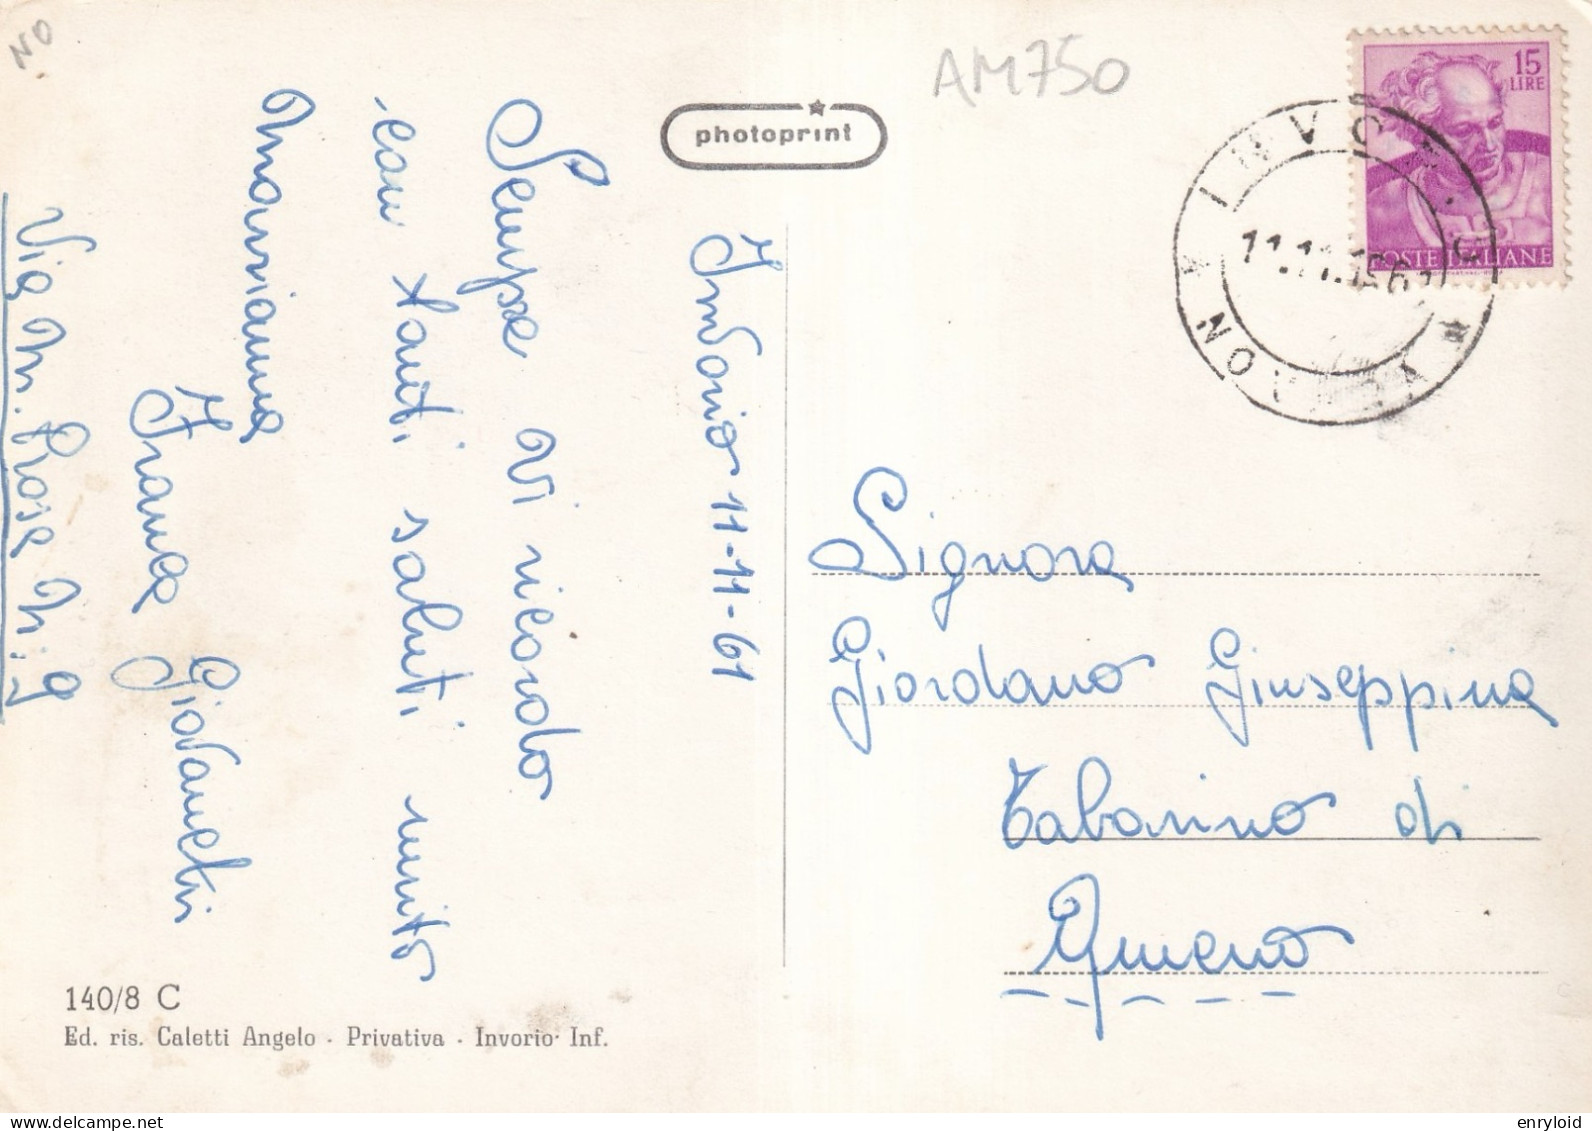 NO
AM750
photoprint
15
LIRE
POSTE ITALIANE
INVORIO
11.11.196
NOVARA
Invorio 11-11-61
Sempre vi ricordo
con tanti saluti unito
Marianna
Franca Giovanetti
Via M. Rosa N. 9
Signora
Giordano Giuseppina
Tabarino di
140/8 C
Ed. ris. Caletti Angelo - Privativa - Invorio Inf.
enryloid